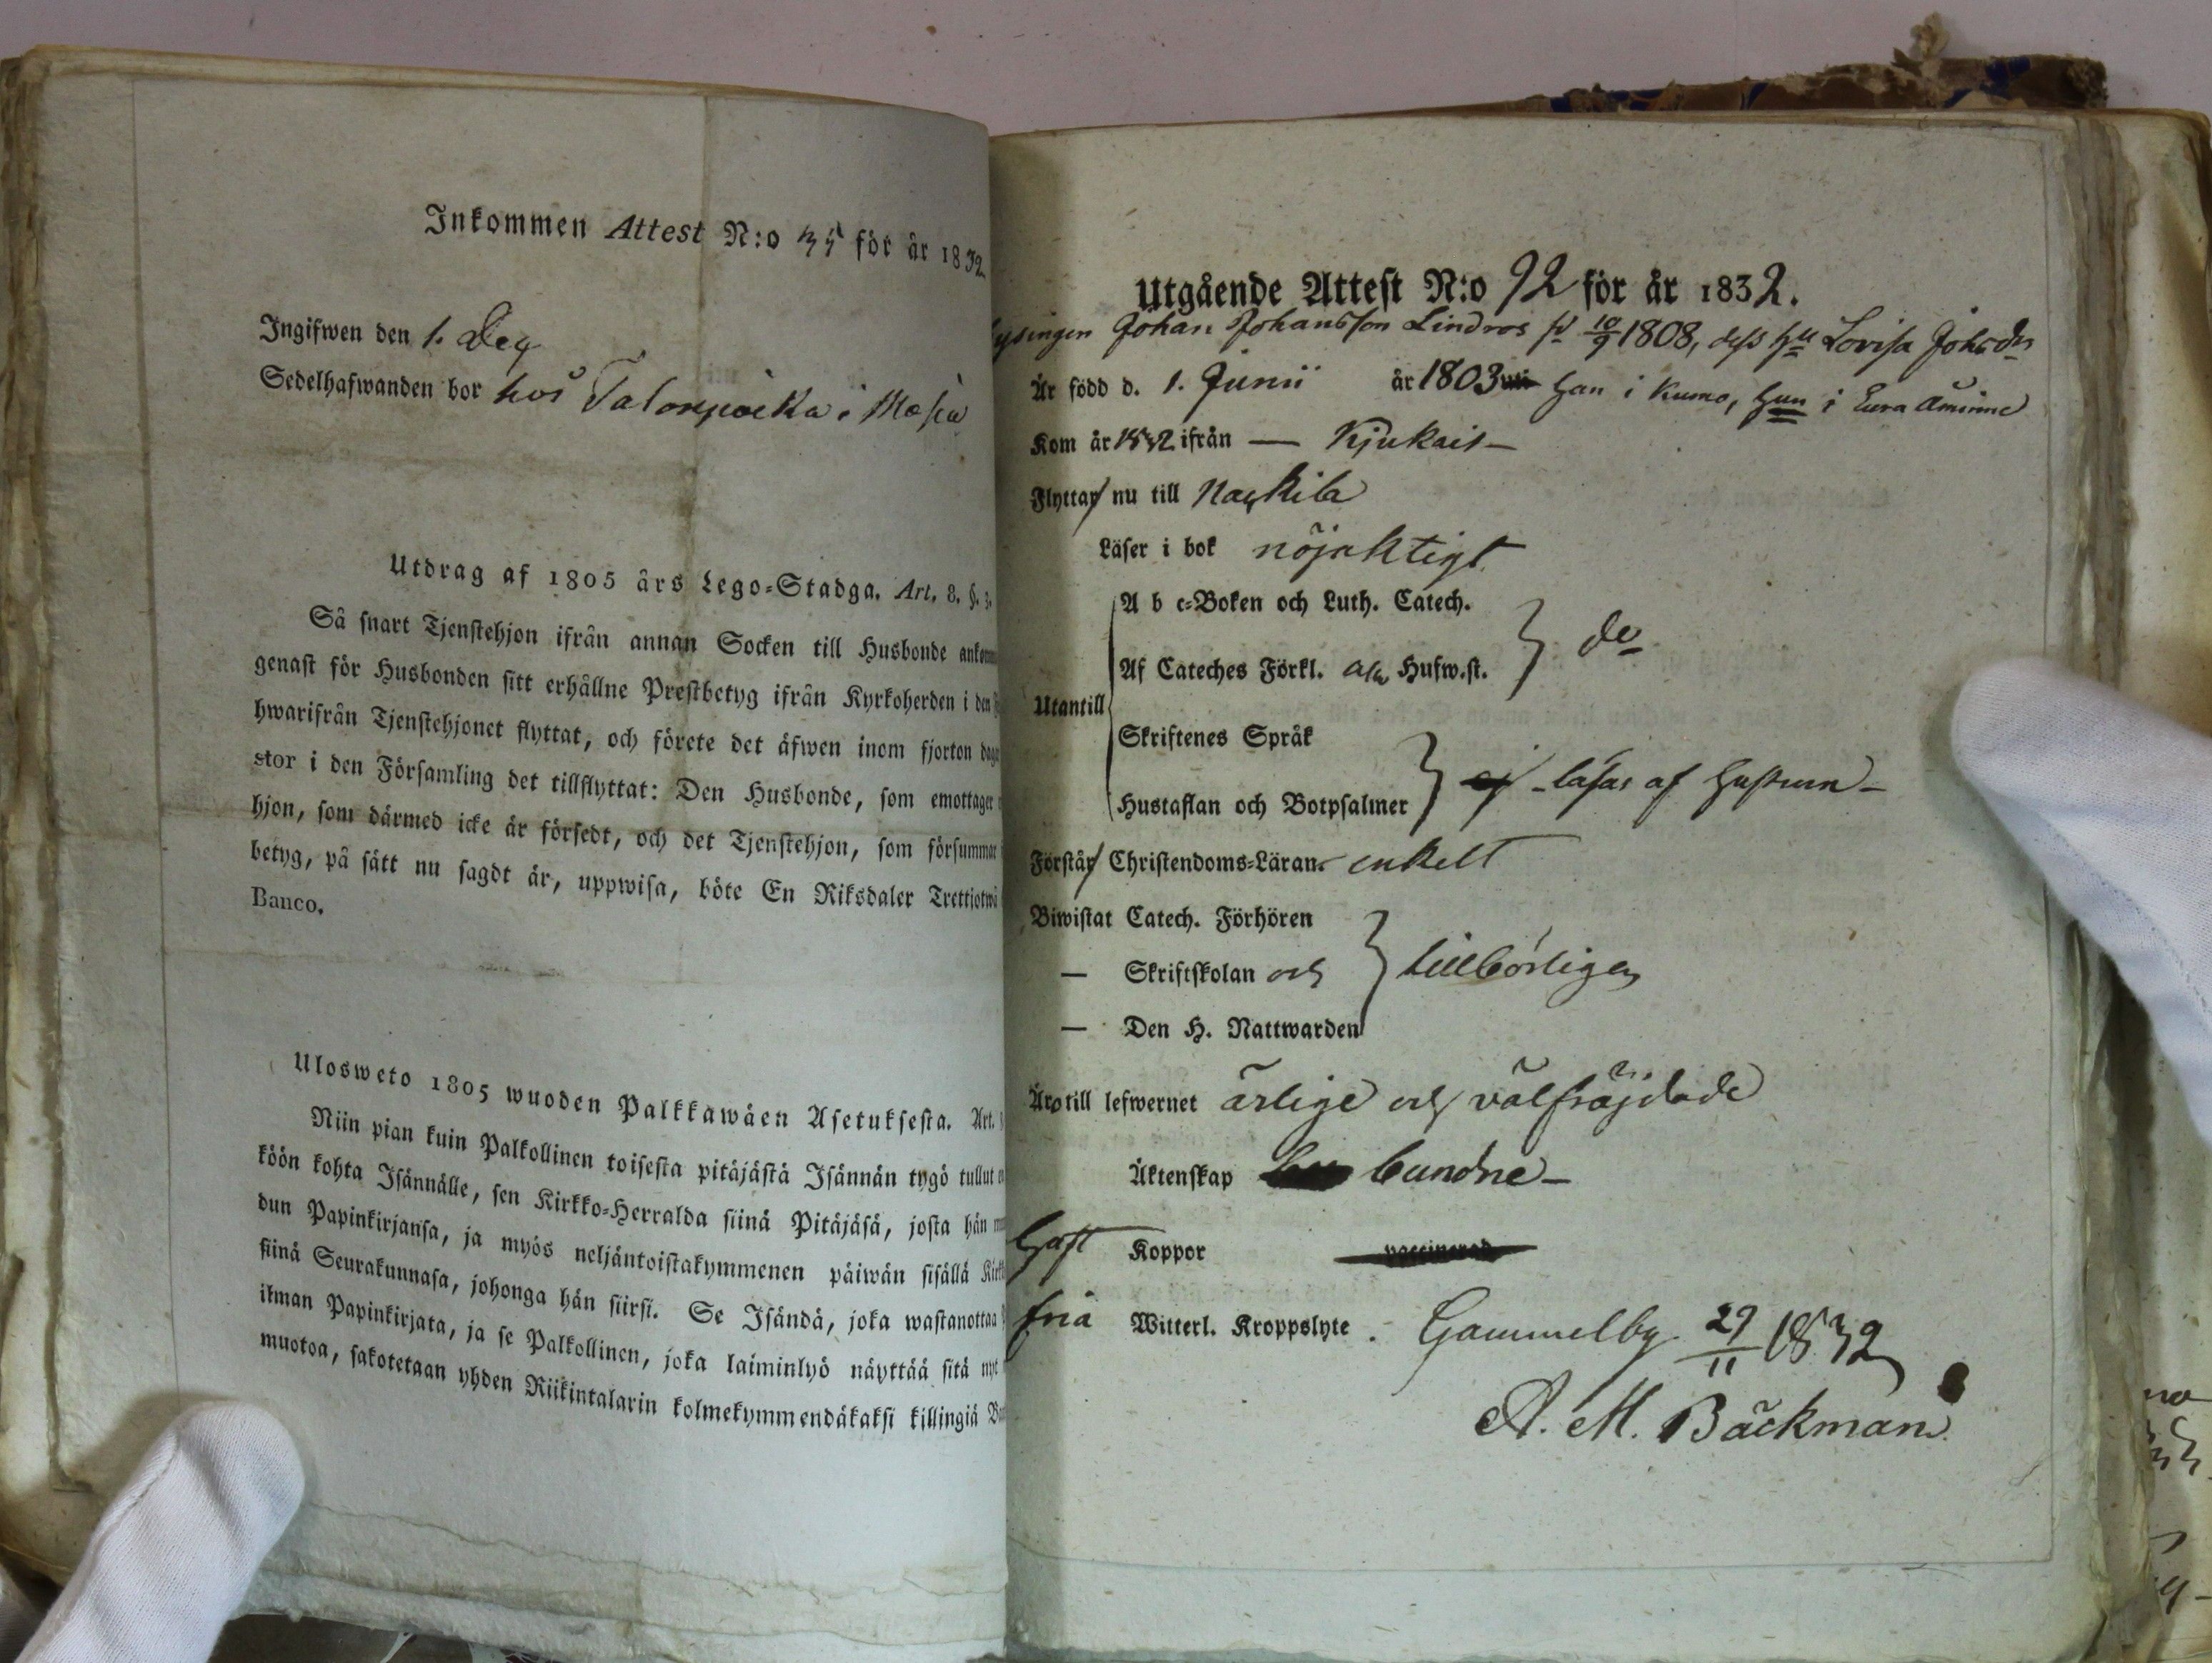 Inkommen Attest N:o 35 för år 1832
Ingifwen den 1. Dec
Sedelhafwanden bor hos i
Utdrag af 1805 års Lego-Stadga. Art. 8. §. 3.
Så snart Tjenstehjon ifrån annan Socken till Husbonde
genast för Husbonden sitt erhållne Prestbetyg ifrån Kyrkoherden i den
hwarifrån Tjenstehjonet flyttat, och förete det äfwen inom fjorton
stor i den Församling det tillflyttat: Den Husbonde, som emottager
hjon, som därmed icke är försedt, och det Tjenstehjon, som försummar
betyg, på sätt nu sagdt är, uppwisa, böte En Riksdaler Trettiotwå
Banco.
Ulosweto 1805 wuoden Palkkawäen Asetuksesta. Art.
Niin pian kuin Palkollinen toisesta pitäjästä Isännän tygö tullut
köön kohta Isännälle, sen Kirkko-Herralda siinä Pitäjäsä, josta hän
dun Papinkirjansa, ja myös neljäntoistakymmenen päiwän sisällä
siinä Seurakunnasa, johonga hän siirsi. Se Isändä, joka wastanottaa
ilman Papinkirjata, ja se Palkollinen, joka laiminlyö näyttää sitä nyt
muotoa, sakotetaan yhden Riikintalarin kolmekymmendäkaksi killingiä
Utgående Attest N:o 92 för år 1832.
Johan Johansson Lindros fd 10/9 1808, dess hu Lovisa Johsdr
Är född d. 1. Junii år 1803 han i Kumo, hun i Eura åminne
Kom år 1832 ifrån — Kjukais —
Flytta nu till Nackila
Läser i bok nöjaktigt
A b c-Boken och Luth. Catech.
do
Af Cateches Förkl. Hufw.st.
Utantill
Skriftenes Språk
läsas af hustrun —
Hustaflan och Botpsalmer
Förstå Christendoms-Läran enkelt
Biwistat Catech. Förhören
— Skriftskolan och tillbörligen
— Den H. Nattwarden
Äro till lefwernet ärlige och välfräjdade
Äktenskap bundne —
Haft Koppor
fria Witterl. Kroppslyte. Gammelby 29/11 1832
A. M. Bäckman.